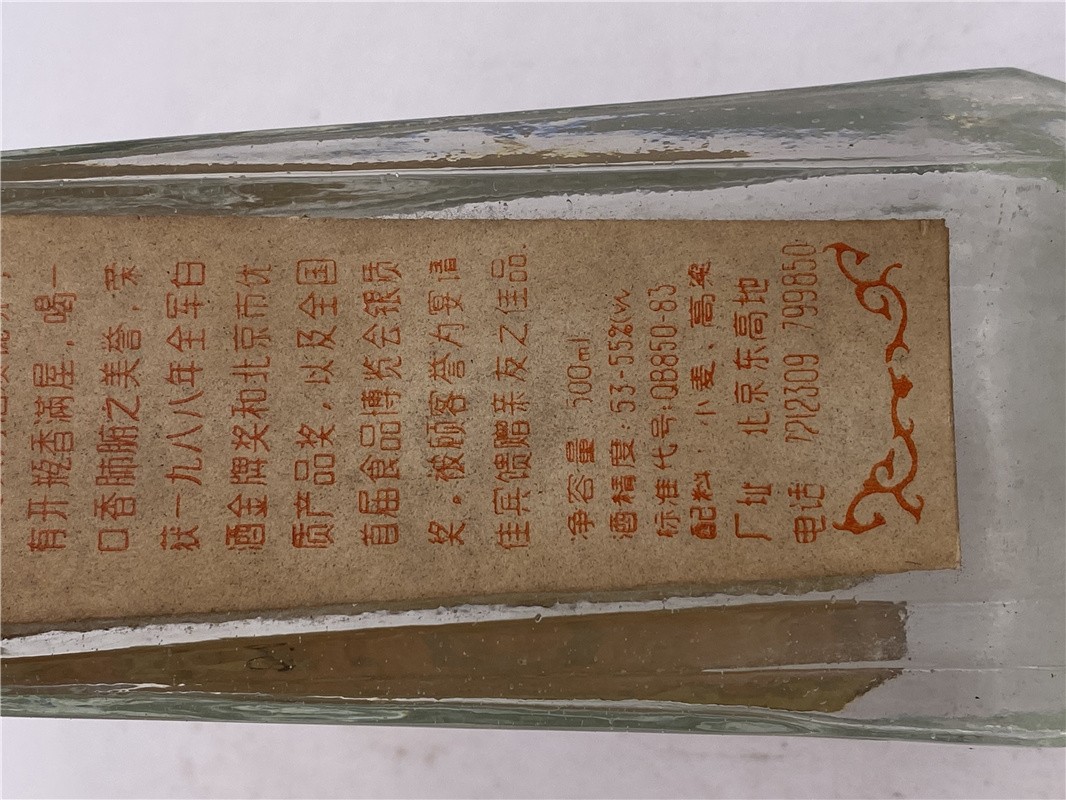 有开瓶香满屋，喝一
口香肺腑之美誉，荣
获一九八八年全军白
酒金牌奖和北京市优
质产品奖，以及全国
首届食品博览会银质
奖。被顾客誉为宴请
佳宾馈赠亲友之佳品.
净容量 500ml
酒精度:53-55%(v
标准代号:QB850-83
配料 小麦、高粱
厂址 北京东高地
电话 7712309 799850